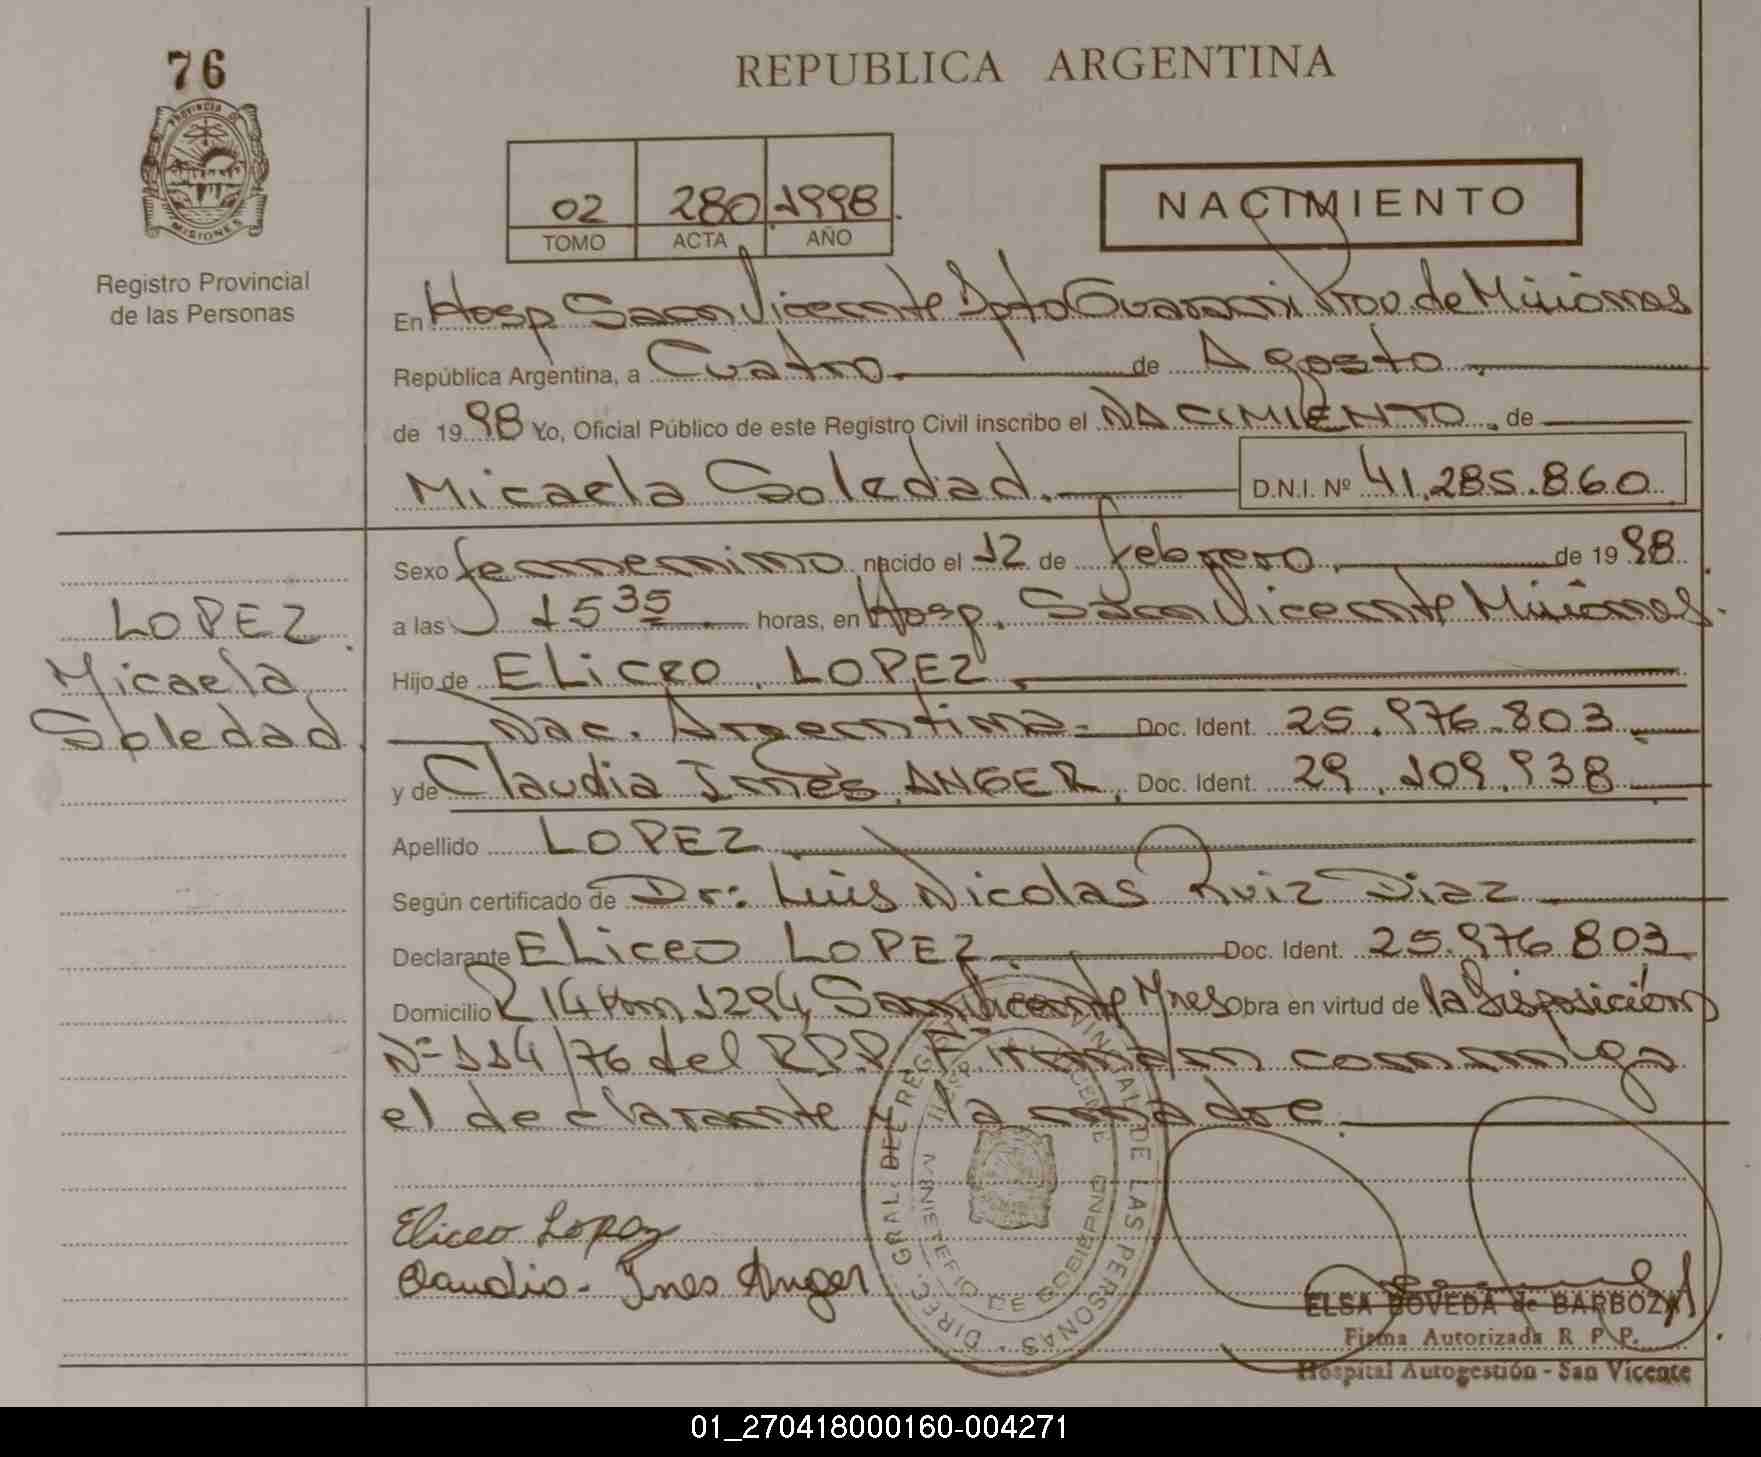 76
PROVINCIA DE
MISIONES
Registro Provincial
de las Personas
REPUBLICA ARGENTINA
02 280 1998
TOMO ACTA AÑO
NACIMIENTO
En Hosp San Vicente Dpto Guarani Prov. de Misiones
República Argentina, a Cuatro de Agosto
de 1998 Yo, Oficial Público de este Registro Civil inscribo el NACIMIENTO, de
Micaela Soledad. D.N.I. Nº 41.285.860
Sexo femenino nacido el 12 de febrero de 1998
a las 15 35 horas, en Hosp. San Vicente Misiones.
LOPEZ
Micaela
Soledad
Hijo de ELiceo LOPEZ
Nac. Argentina Doc. Ident. 25.976.803
y de Claudia Inés ANGER, Doc. Ident. 29.109.938
Apellido LOPEZ
Según certificado de Dr: Luis Nicolas Ruiz Diaz
Declarante ELiceo LOPEZ Doc. Ident. 25.976.803
Domicilio R 14 Km 1294 San Vicente Mnes Obra en virtud de la Disposición
Nº 114/76 del R.P.P. Firman conmigo
el declarante y la madre.
Eliceo Lopez
Claudio - Ines Anger
DIREC. GRAL. DEL REG. PROVINCIAL DE LAS PERSONAS
HOSP. VICENTE
MINISTERIO DE GOBIERNO
ELSA BOVEDA de BARBOZA
Firma Autorizada R P P.
Hospital Autogestión - San Vicente
01_270418000160-004271